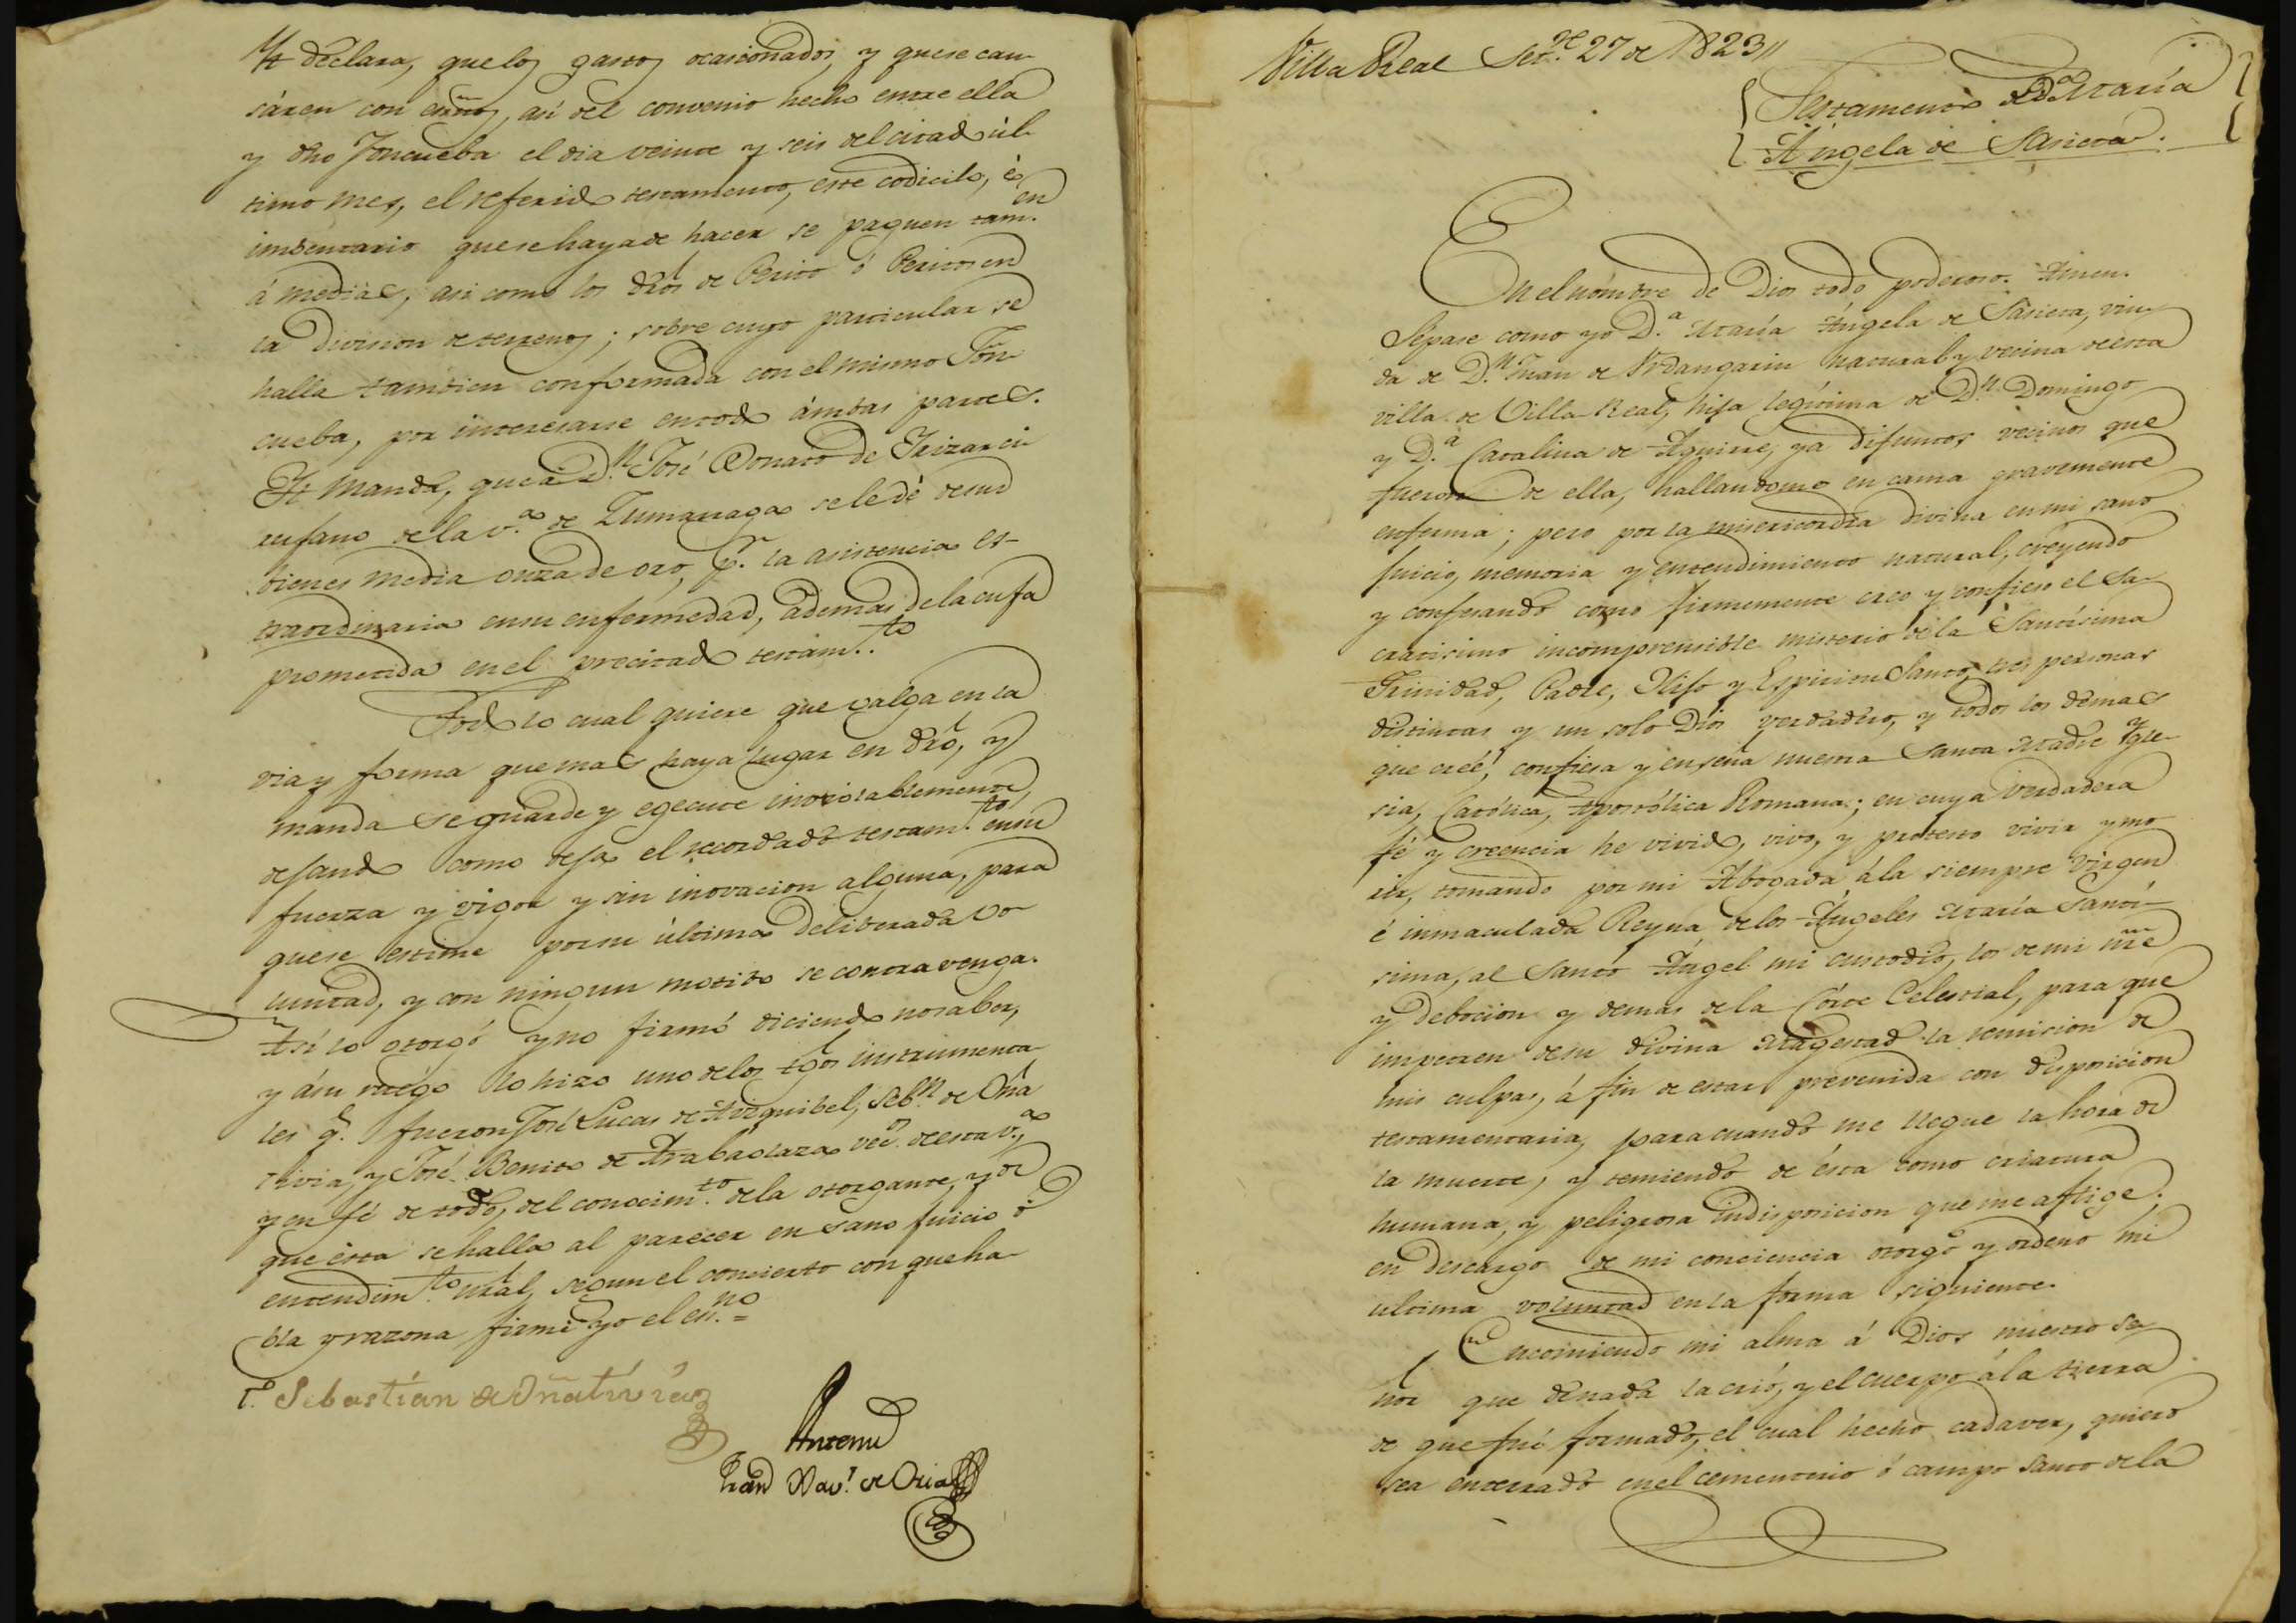 Yt declara, que los gastos ocasionados, y que se cau-
sáren con ésta, asi del convenio hecho entre ella
y dho Joncueba el dia veinte y seis del citado úl-
timo mes, el referido testamento, este codicilo, é
imbentario que se haya de hacer se paguen tam.en
á medias, asi como los dros de Perito ó Peritos en
la division de terrenos; sobre cuyo particular se
halla tambien conformada con el mismo Jon-
cueba, por interesarse en todo ámbas partes.
Yt Manda, que á D.n José Donato de Irizar ci-
rujano de la v.a de Zumarraga se le dé de sus
bienes media onza de oro, p.r la asistencia es-
traordinaria en su enfermedad, ademas de la cuja
prometida en el precitado testam.to
Todo lo cual quiere que valga en la
via y forma que mas haya lugar en dro, y
manda se guarde y egecute inviolablemente,
dejando como deja el recordado testam.to en su
fuerza y vigor y sin inovacion alguna, para
que se estime por su última deliberada vo-
luntad, y con ningun motivo se contravenga.
Así lo otorgó y no firmó diciendo no saber,
y á su ruego lo hizo uno de los tgos instrumenta-
les q.e fueron José Lucas de Arizquibel, Seb.n de Oña-
tivia, y José Benito de Arabaolaza vec.s de esta v.a,
y en fé de todo, del conocim.to de la otorgante, y de
que ésta se halla al parecer en sano juicio é
entendim.to nral, segun el concierto con que ha-
bla y razona firmé yo el es.no =
T.o Sebastían de Oñatívía
Antemi
Fran.co Xav.r de Oria
Villa Real Set.re 27 de 1823//
Testamento de D.a María
Ángela de Sasieta.
En el nómbre de Dios todo poderoso. Amen.
Sépase como yo D.a María Ángela de Sasieta, viu-
da de D.n Juan de Urdangarin natural y vecina de esta
villa de Villa Real, hija legítima de D.n Domingo
y D.a Catalina de Aguirre, ya difuntos, vecinos que
fueron de ella, hallandome en cama gravemente
enferma; pero por la misericordia divina en mi sano
juicio, memoria y entendimiento natural, creyendo
y confesando como firmemente creo y confieso el Sa-
cratisimo incomprensible misterio de la Santísima
Trinidad, Padre, Hijo y Espiritu Santo, tres personas
distintas y un solo Dios verdadero, y todos los demas
que creé, confiesa y enseña nuestra Santa Madre Ygle-
sia, Católica, Apostólica Romana; en cuya verdadera
fé y creencia he vivido, vivo, y protesto vivir y mo-
rir, tomando por mi Abogada á la siempre Virgen
é inmaculada Reyna de los Ángeles María Santí-
sima, al Santo Ángel mi custodio, los de mi nre
y debocion y demas de la Córte Celestial, para que
impetren de su divina Magestad la remision de
mis culpas, á fin de estar prevenida con disposicion
testamentaria, para cuando me llegue la hora de
la muerte, y temiendo de ésta como criatura
humana, y peligrosa indisposicion que me aflige,
en descargo de mi conciencia otorgo y ordeno mi
ultima voluntad en la forma siguiente.
Encomiendo mi alma á Dios nuestro Se-
ñor que de nada la crió, y el cuerpo á la tierra
de que fué formado, el cual hecho cadaver, quiero
sea enterrado en el cementerio ó campo Santo de la